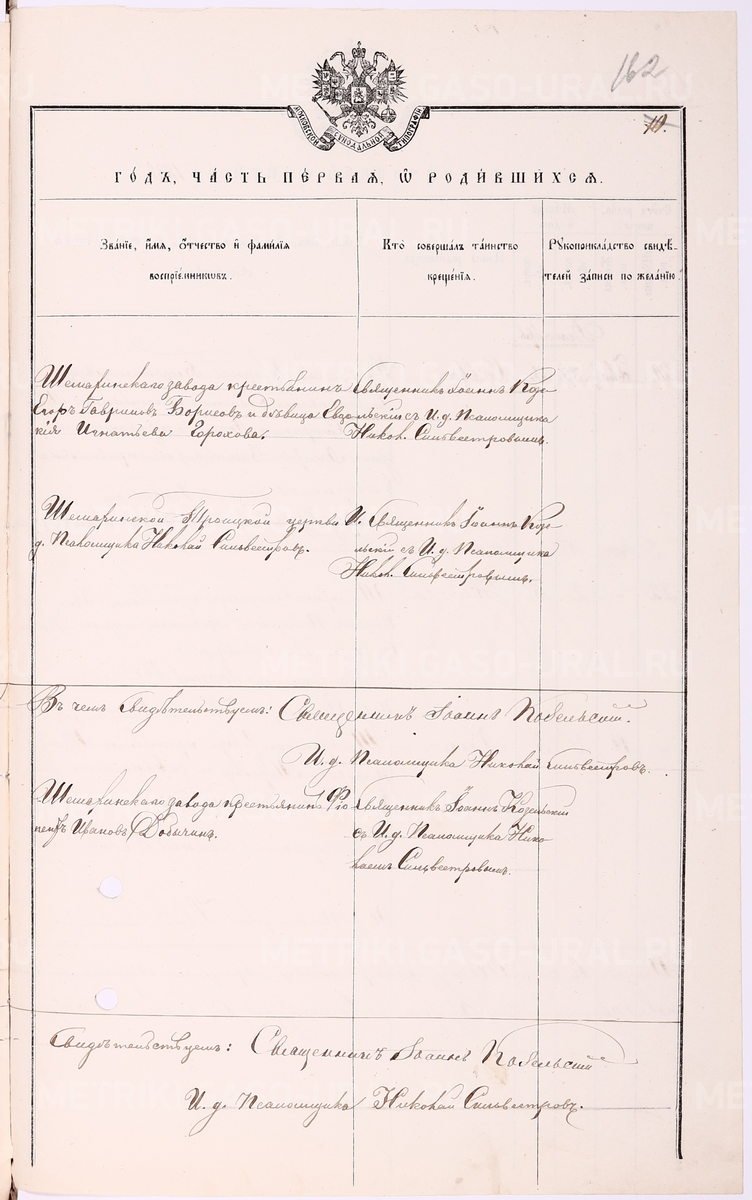 162
10.
МОСКОВСКОЙ СѴНОДАЛЬНОЙ ТИПОГРАФІИ
ГО́ДЪ, ЧА́СТЬ ПЕ́РВАЯ, Ѡ РОДИ́ВШИХСЯ.
Зва́ніе, и́мя, о́тчество и҆ фами́лія
воспріе́мниковъ.
Кто̀ соверша́лъ та́инство
креще́нія.
Рукоприкла́дство свидѣ́-
телей за́писи по жела́нію
Шемаринскаго завода крестьянинъ
Егоръ Гавриловъ Борисовъ и дѣвица Евдо
кія Игнатьева Горохова.
Священникъ Іоаннъ Ко
зельскій съ И. д. Псаломщика
Никол. Сильвестровымъ.
Шемаринской Троицкой церкви И.
д. Псаломщика Николай Сильвестровъ.
Священникъ Іоаннъ Козе-
льскій съ И. д. Псаломщика
Никол. Сильвестровымъ.
Въ чемъ Свидѣтельствуемъ: Священникъ Іоаннъ Козельскій.
И. д. Псаломщика Николай Сильвестровъ.
Шемаринскаго завода крестьянинъ
Ивановъ Добычинъ.
Священникъ Іоаннъ Козельскій
съ И. д. Псаломщика Нико
лаемъ Сильвестровымъ.
Свидѣтельствуемъ: Священникъ Іоаннъ Козельскій
И. д. Псаломщика Николай Сильвестровъ.
METRIKI.GASO-URAL.RU